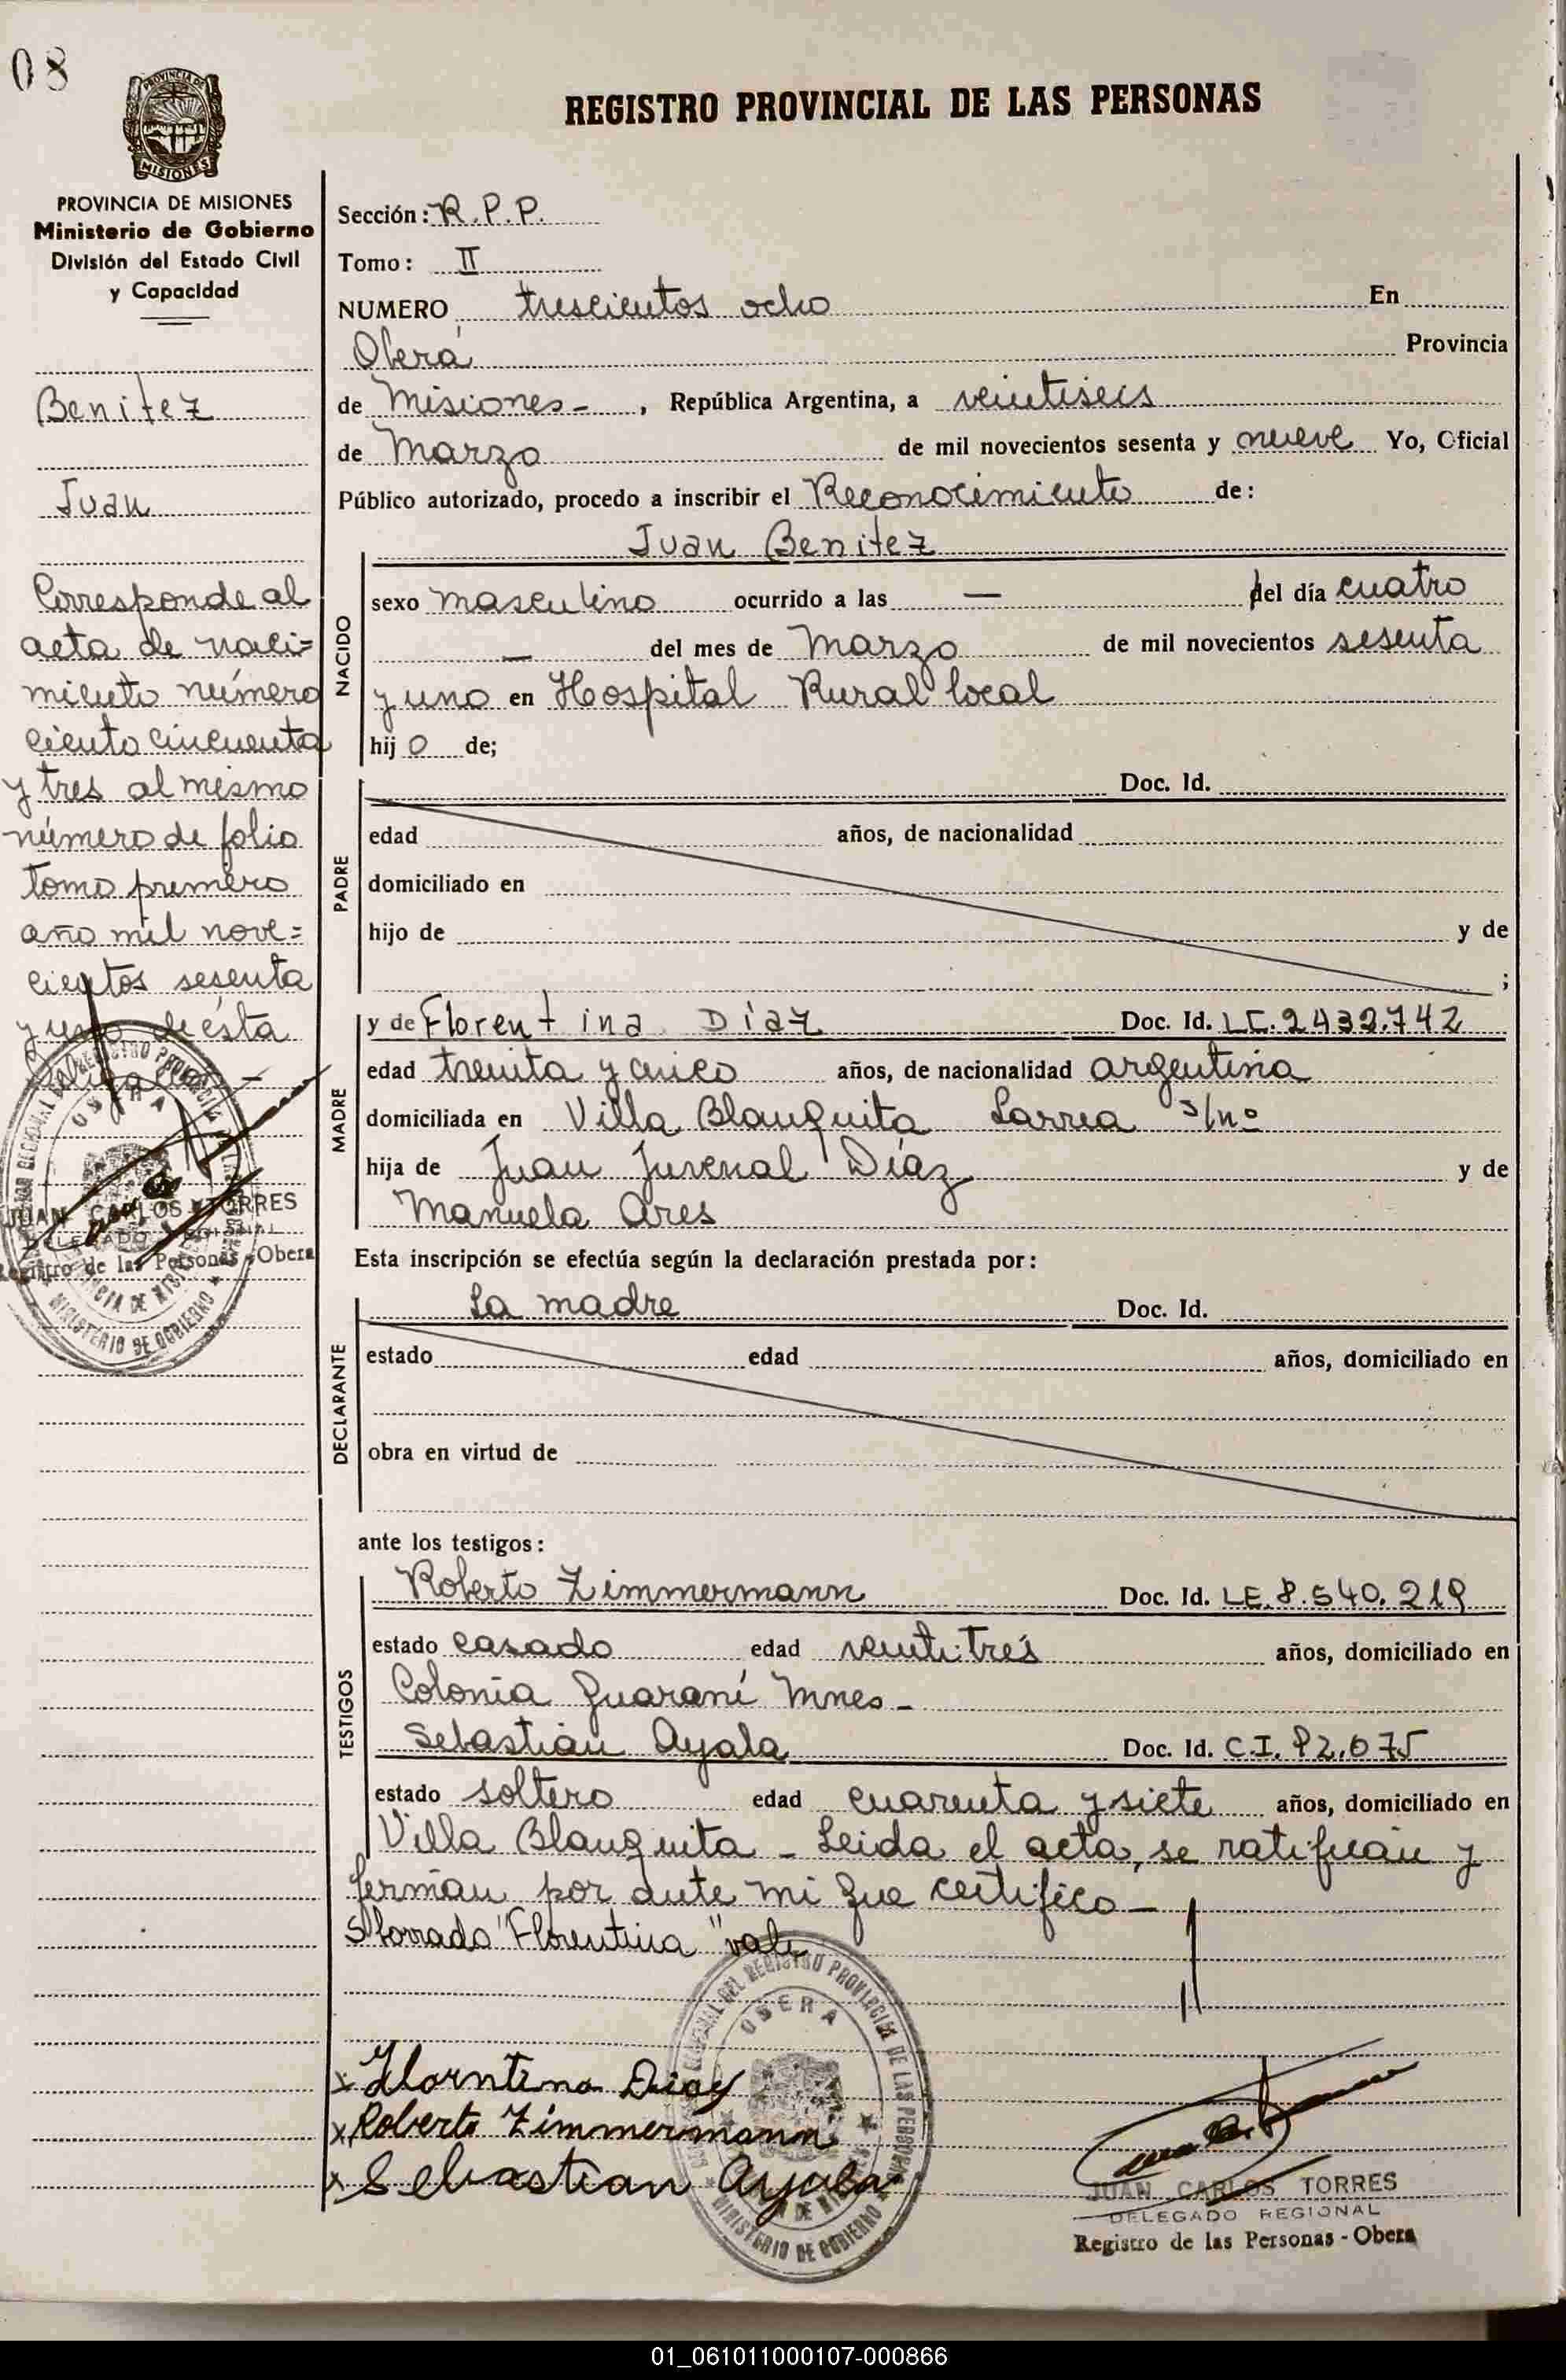 08
PROVINCIA DE
MISIONES
REGISTRO PROVINCIAL DE LAS PERSONAS
PROVINCIA DE MISIONES
Ministerio de Gobierno
División del Estado Civil
y Capacidad
Benitez
Juan
Corresponde al
acta de naci=
miento número
ciento cincuenta
y tres al mismo
número de folio
tomo primero
año mil nove=
cientos sesenta
y uno de ésta
OBERA
JUAN CARLOS TORRES
DELEGADO REGIONAL
Registro de las Personas - Obera
MINISTERIO DE GOBIERNO
Sección: R.P.P.
Tomo: II
NUMERO trescientos ocho En
Oberá Provincia
de Misiones- , República Argentina, a veintiseis
de Marzo de mil novecientos sesenta y nueve Yo, Oficial
Público autorizado, procedo a inscribir el Reconocimiento de:
Juan Benitez
NACIDO
sexo masculino ocurrido a las — del día cuatro
— del mes de Marzo de mil novecientos sesenta
y uno en Hospital Rural local
hijo de;
PADRE
Doc. Id.
edad años, de nacionalidad
domiciliado en
hijo de y de
;
MADRE
y de Florentina Diaz Doc. Id. LC.2432.742
edad treinta y cinco años, de nacionalidad argentina
domiciliada en Villa Blanquita Larrea s/nº
hija de Juan Juvenal Díaz y de
Manuela Ares
Esta inscripción se efectúa según la declaración prestada por:
DECLARANTE
La madre Doc. Id.
estado edad años, domiciliado en
obra en virtud de
ante los testigos:
TESTIGOS
Roberto Zimmermann Doc. Id. LE.8.540.219
estado casado edad veintitrés años, domiciliado en
Colonia Guaraní Mnes-
Sebastián Ayala Doc. Id. C.I. 92.075
estado soltero edad cuarenta y siete años, domiciliado en
Villa Blanquita - Leida el acta, se ratifican y
firman por ante mi que certifico-
S/borrado "Florentina" vale
Florntina Diaz
Roberto Zimmermann
Sebastian Ayala
REGISTRO PROVINCIAL DE LAS PERSONAS
OBERA
MINISTERIO DE GOBIERNO
JUAN CARLOS TORRES
DELEGADO REGIONAL
Registro de las Personas - Obera
01_061011000107-000866